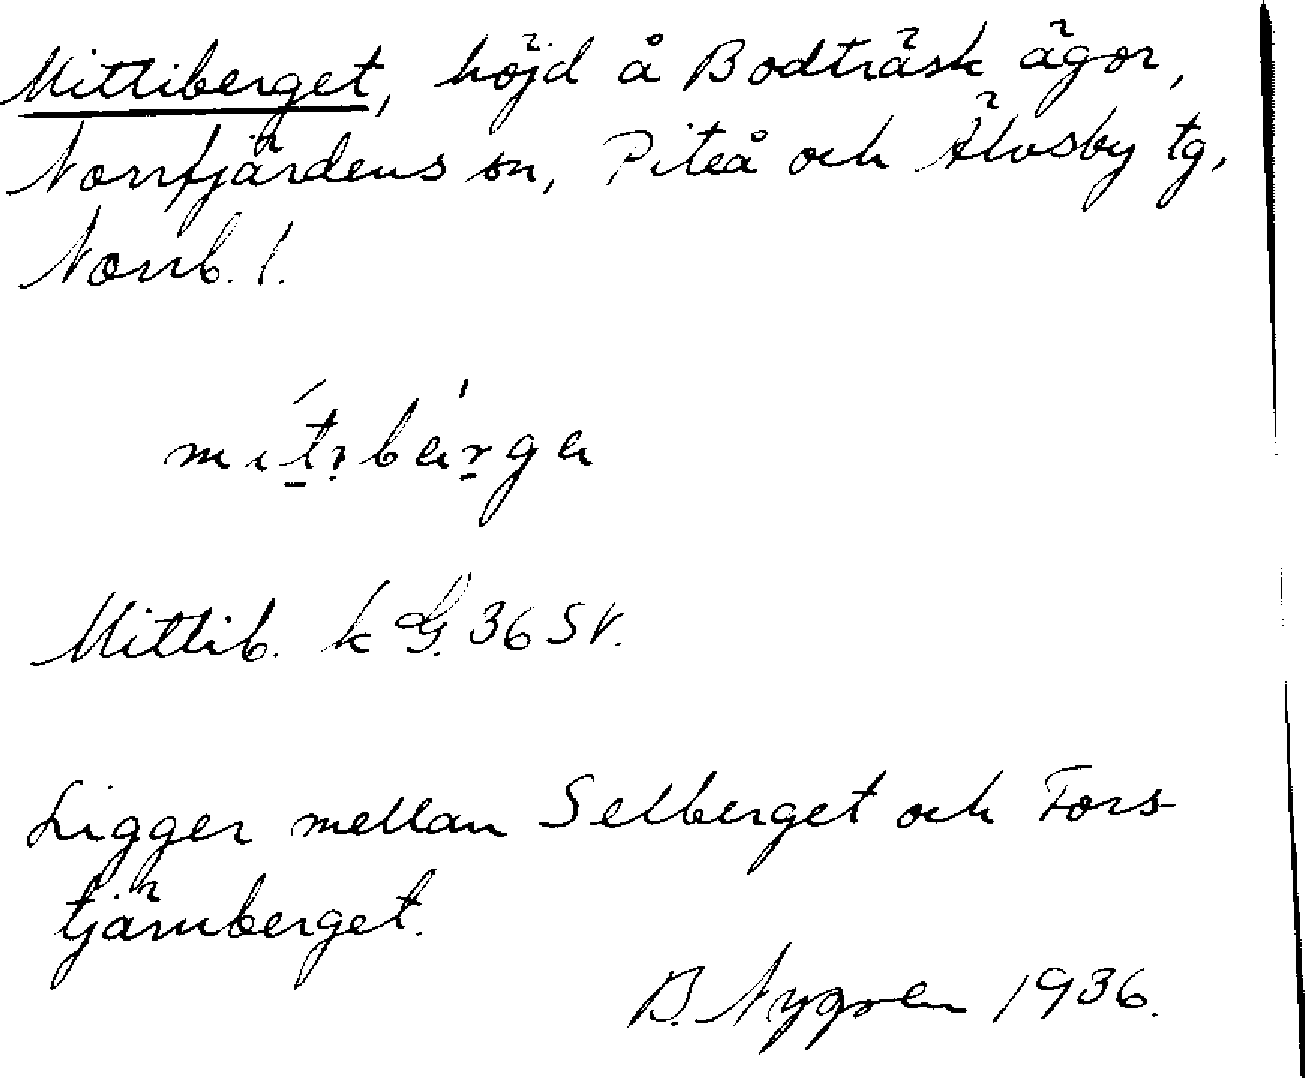 Mittiberget, höjd å Bodträsk ägor,
Norrfjärdens sn, Piteå och Älvsby tg,
Norrb. l.
Mittib. k G. 36 SV.
Ligger mellan Selberget och Fors-
tjärnberget.
B. Nygren 1936.